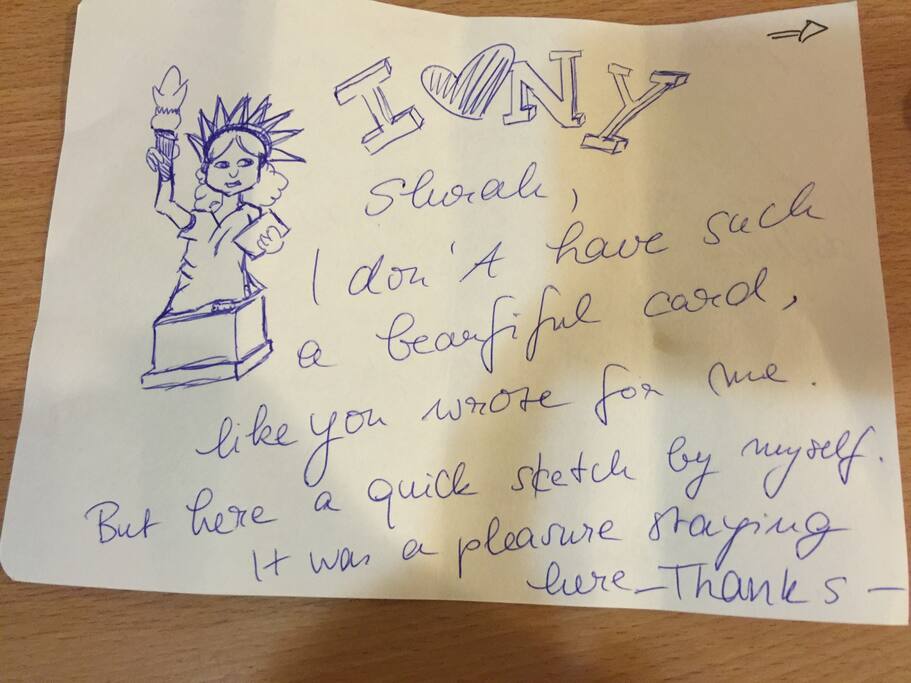 I ♥ NY
Shorah,
I don't have such
a beautiful card,
like you wrote for me.
But here a quick sketch by myself.
It was a pleasure staying
here – Thanks –